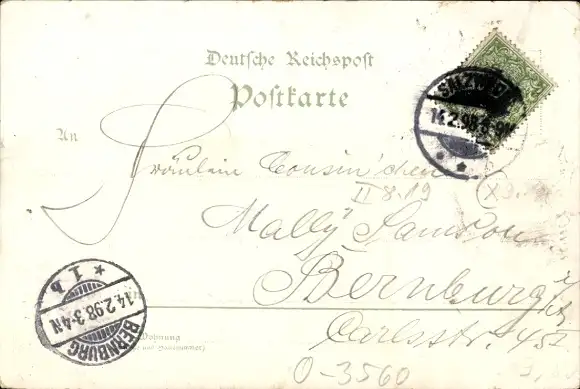 Deutsche Reichspost
Postkarte
SALZWEDEL
14.2.98
An
Fräulein Cousin'chen
II 8.19
Mally Samson
Bernburg
Carlsstr. 45 I
BERNBURG
14.2.98.3-4N
* 1 b
Wohnung
O-3560